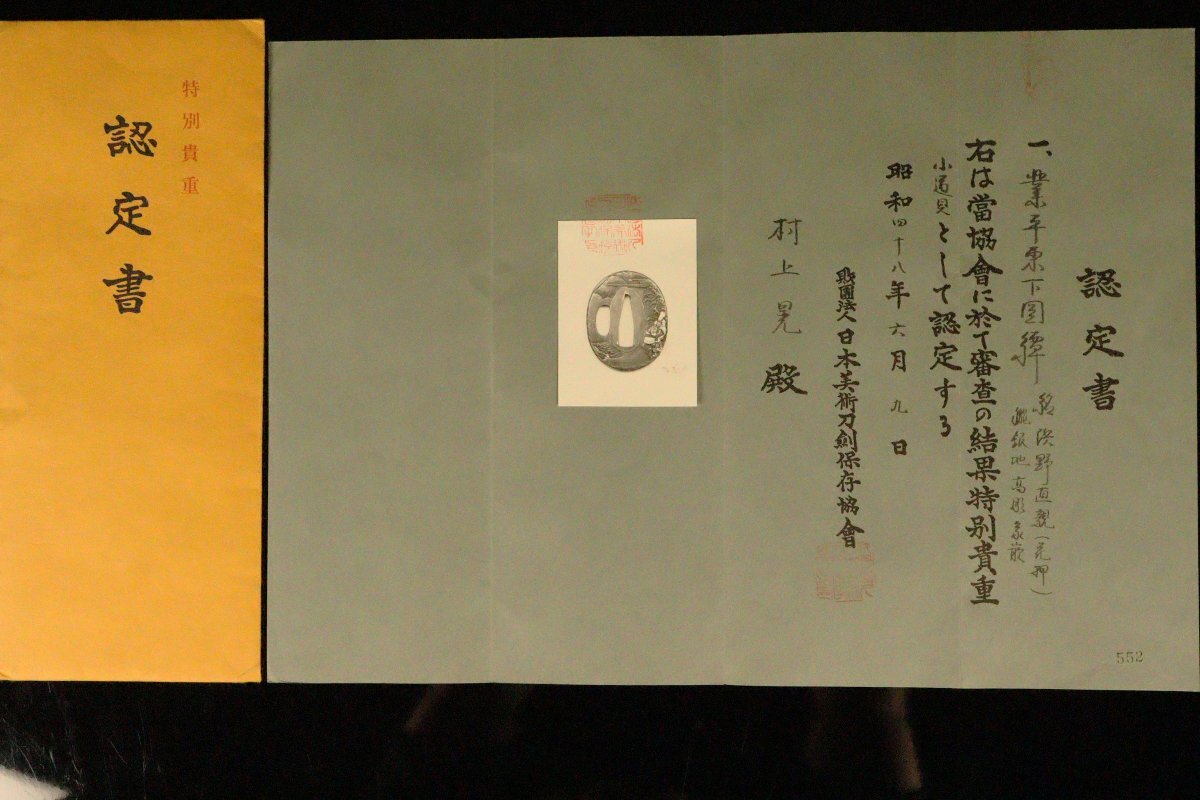 認定書
一、業平東下図鐔
銘 浜野直親(花押)
朧銀地高彫象嵌
右は當協會に於て審査の結果特別貴重
小道具として認定する
昭和四十八年六月九日
財團法人日本美術刀劍保存協會
村上晃殿
552
特別貴重
認定書